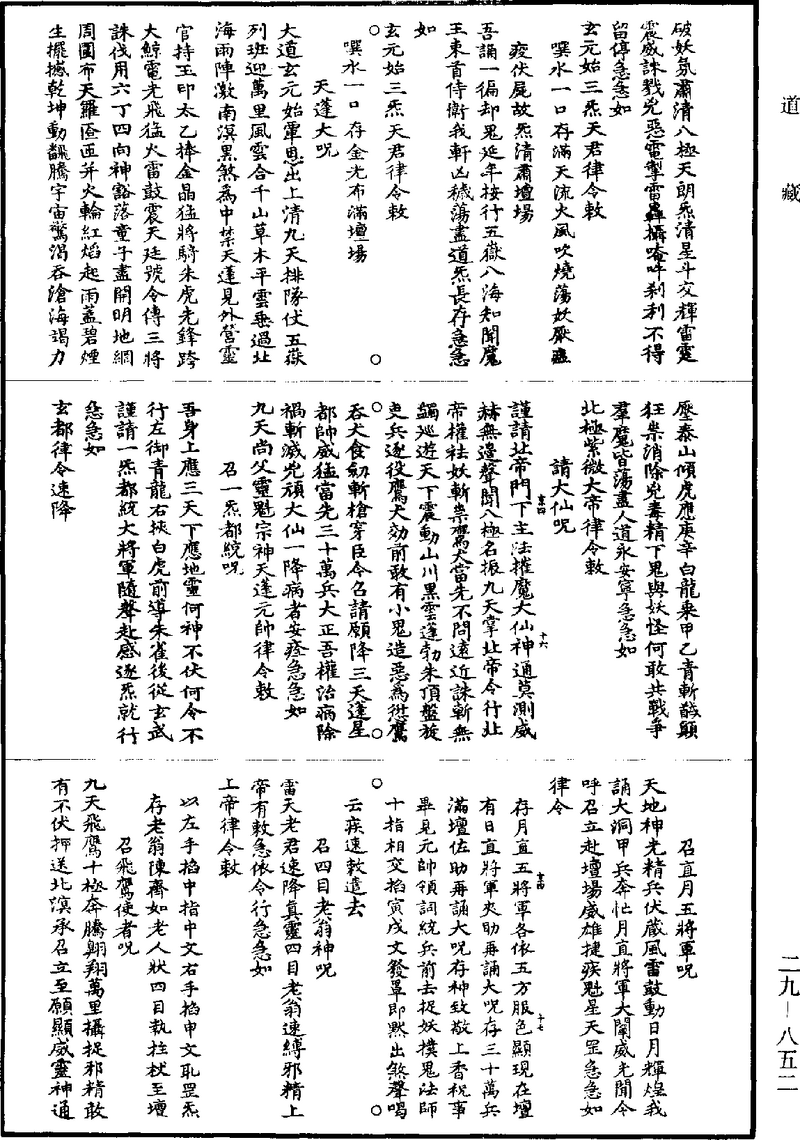 道藏
破妖氛肅清八極天朗炁清星斗交輝雷霆
震威誅戮兇惡電掣雷轟攝唵吽剎利不得
留停急急如
玄元始三炁天君律令敕
噀水一口存滿天流火風吹燒蕩妖厭蠱
疫伏屍故炁清肅壇場
吾誦一徧却鬼延年按行五嶽八海知聞魔
王束首侍衛我軒凶穢蕩盡道炁長存急急
如
玄元始三炁天君律令敕
噀水一口存金光布滿壇場
天蓬大呪
大道玄元始軍恩出上清九天排隊仗五嶽
列班迎萬里風雲合千山草木平雲乗過北
海雨陣激南溟黒煞為中禁天蓬見外營靈
官持玉印太乙捧金晶猛將騎朱虎先鋒跨
大鯨電光飛猛火雷鼓震天廷號令傳三將
誅伐用六丁四向神谿落童子盡開明地網
周圍布天羅匝匝并火輪紅焰起雨蓋碧煙
生擺撼乾坤動飜騰宇宙驚渴吞滄海竭力
壓泰山傾虎應庚辛白龍乗甲乙青斬馘顛
狂祟消除兇毒精下鬼與妖怪何敢共戰爭
羣魔皆蕩盡人道永安寧急急如
北極紫微大帝律令敕
請大仙呪
謹請北帝門下主法摧魔大仙神通莫測威
赫無邉聲聞八極名振九天掌北帝令行北
帝權袪妖斬祟鷹犬當先不問遠近誅斬無
蠲巡遊天下震動山川黒雲蓬勃朱頂盤旋
吏兵逐役鷹犬効前敢有小鬼造惡為愆鷹
吞犬食劒斬槍穿臣今召請願降三天蓬星
都帥威猛當先三十萬兵大正吾權治病除
禍斬滅兇頑大仙一降病者安痊急急如
九天尚父靈魁宗神天蓬元帥律令敕
召一炁都統呪
吾身上應三天下應地靈何神不伏何令不
行左御青龍右挾白虎前導朱雀後從玄武
謹請一炁都統大將軍隨聲赴感逐炁就行
急急如
玄都律令速降
召直月五將軍呪
天地神光精兵伏藏風雷鼓動日月輝煌我
誦大洞甲兵奔忙月直將軍大闡威光聞令
呼召立赴壇場威雄捷疾魁星天罡急急如
律令
存月直五將軍各依五方服色顯現在壇
有日直將軍夾助再誦大呪存三十萬兵
滿壇佐助再誦大呪存神致敬上香祝事
畢見元帥領詞統兵前去捉妖撲鬼法師
十指相交掐寅戌文發罩即黙出煞聲喝
云疾速敕遣去
召四目老翁神呪
雷天老君速降真靈四目老翁速縛邪精上
帝有敕急依令行急急如
上帝律令敕
以左手掐中指中文右手掐申文耻罡炁
存老翁陳齊如老人狀四目執拄杖至壇
召飛鷹使者呪
九天飛鷹十極奔騰翺翔萬里攝捉邪精敢
有不伏押送北溟承召立至願顯威靈神通
二九—八五二